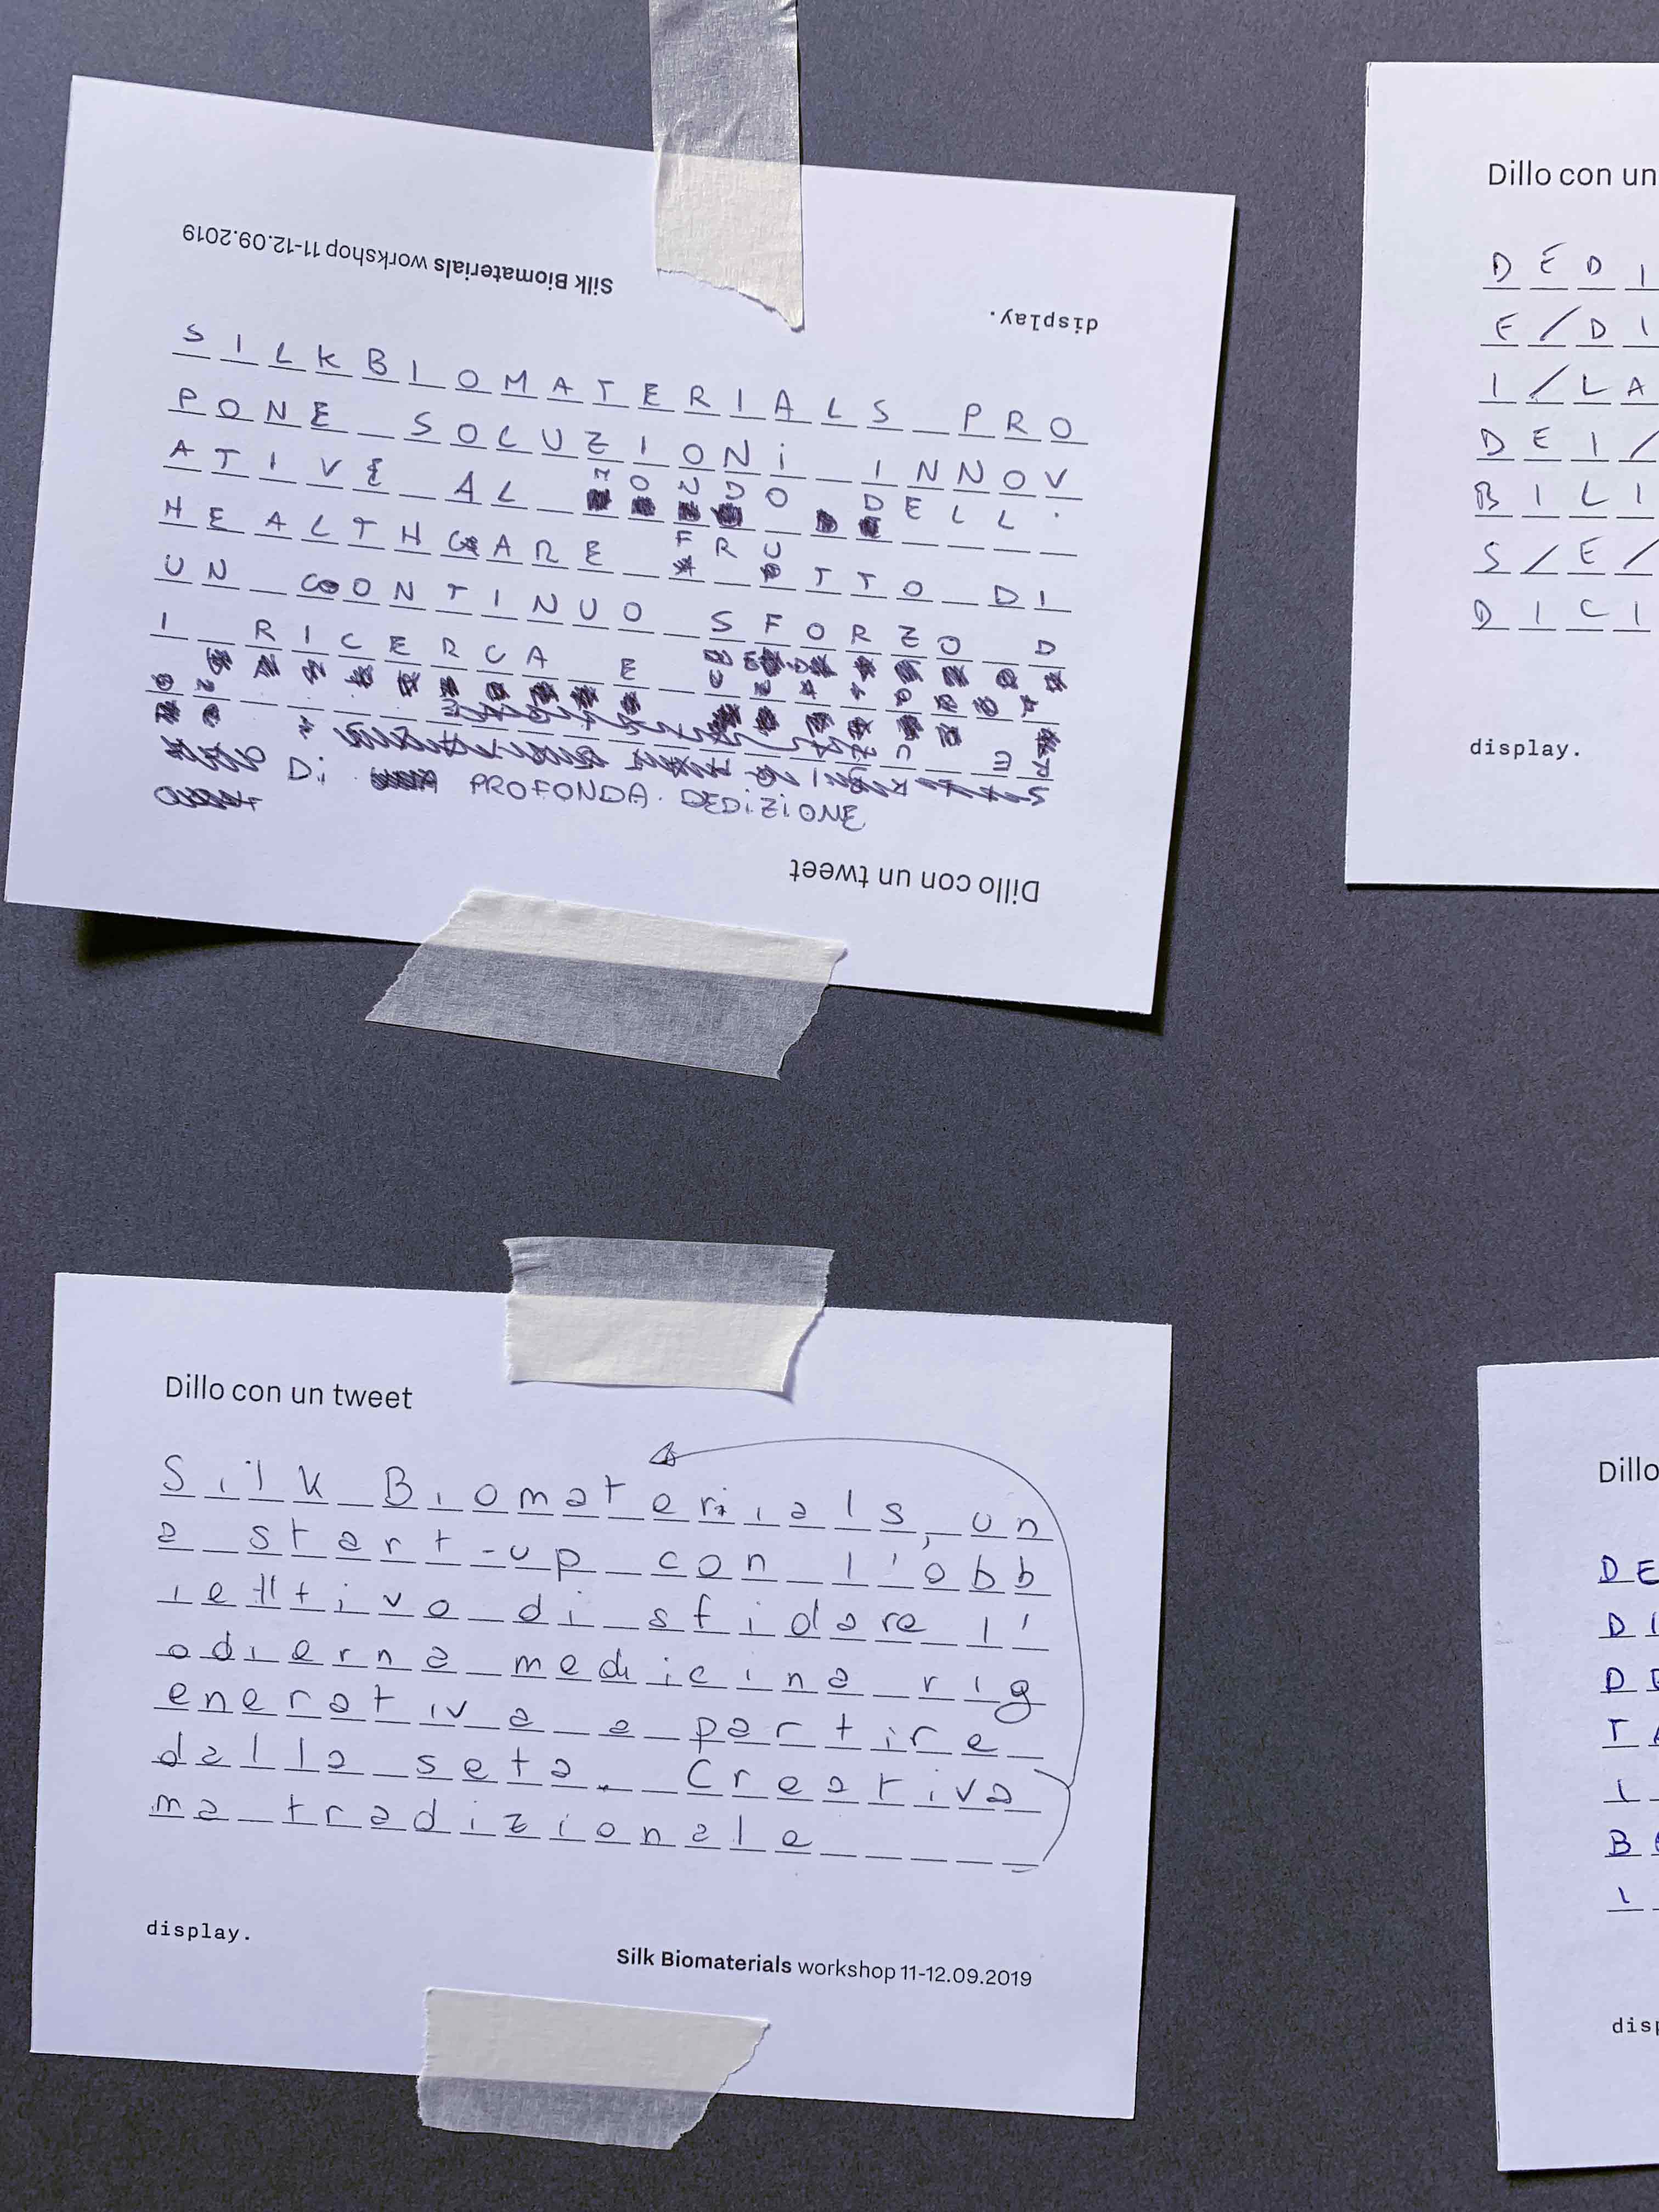 Silk Biomaterials workshop 11-12.09.2019
display.
SILKBIOMATERIALS PRO
PONE SOLUZIONi INNOV
ATIVE AL MONDO DELL'
HEALTHCARE FRUTTO DI
UN CONTINUO SFORZO D
I RICERCA E
Di PROFONDA DEDiZiONE
Dillo con un tweet
Dillo con un tweet
Silk Biomaterials, un
a start-up con l'obb
iettivo di sfidare l'
odierna medicina rig
enerativa a partire
dalla seta. Creativa
ma tradizionale
display.
Silk Biomaterials workshop 11-12.09.2019
Dillo con un
DEDI
E/DI
I/LA
DEI/
BILI
S/E/
DICI
display.
Dillo
DE
DI